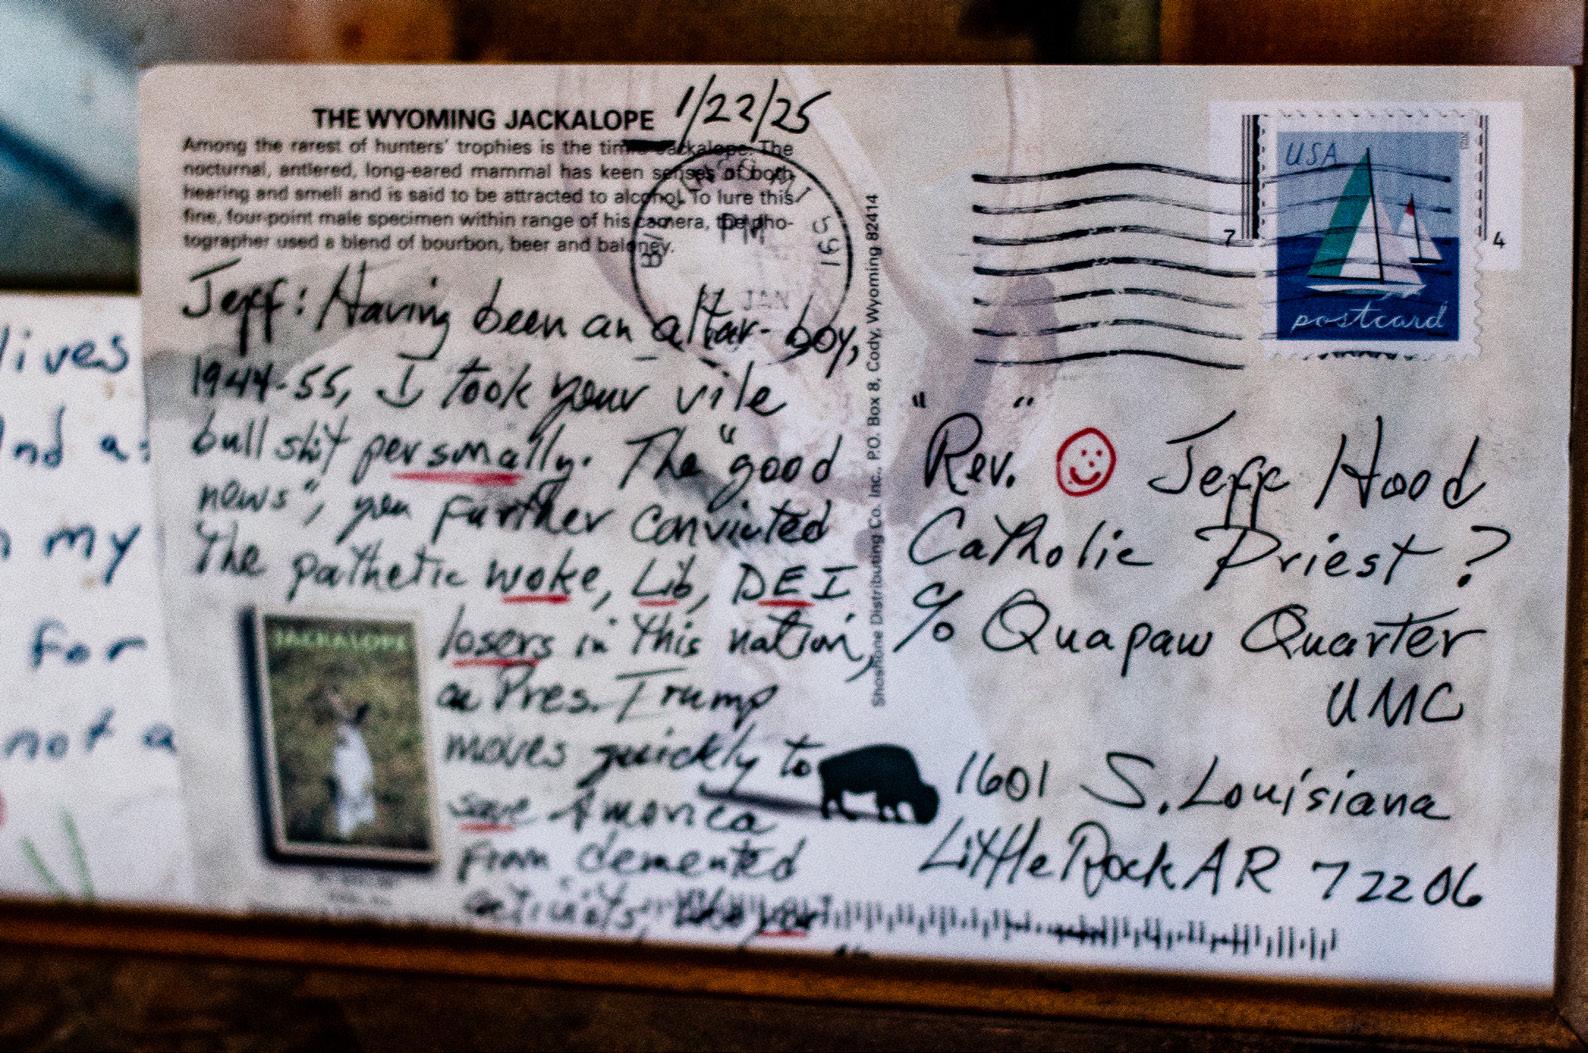 THE WYOMING JACKALOPE
1/22/25
Among the rarest of hunters' trophies is the timid Jackalope. The
nocturnal, antlered, long-eared mammal has keen senses of both
hearing and smell and is said to be attracted to alcohol. To lure this
fine, four-point male specimen within range of his camera, the pho-
tographer used a blend of bourbon, beer and baloney.
Jeff: Having been an altar-boy,
1944-55, I took your vile
bullshit personally. The "good
news", you further convicted
the pathetic woke, Lib, DEI
losers in this nation,
as Pres. Trump
moves quickly to
save America
from demented
like you
JACKALOPE
Shoshone Distributing Co. Inc., P.O. Box 8, Cody, Wyoming 82414
PM
JAN
USA
postcard
7
4
"Rev." Jeff Hood
Catholic Priest?
c/o Quapaw Quarter
UMC
1601 S. Louisiana
Little Rock AR 72206
lives
my
for
not a